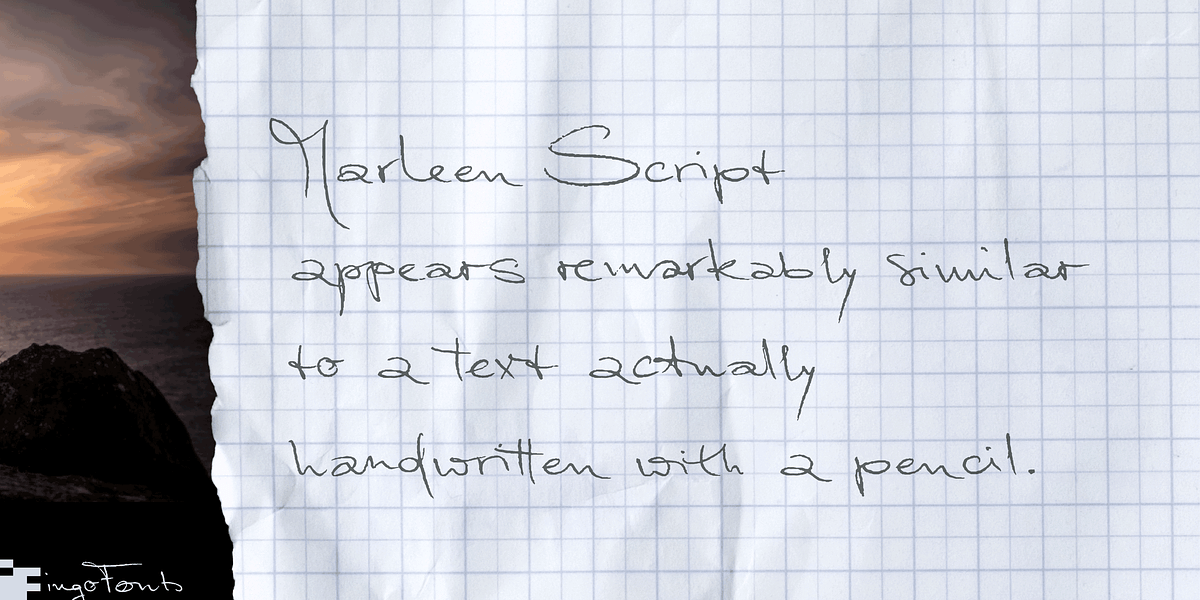 Marleen Script
appears remarkably similar
to a text actually
handwritten with a pencil.
ingoFonts